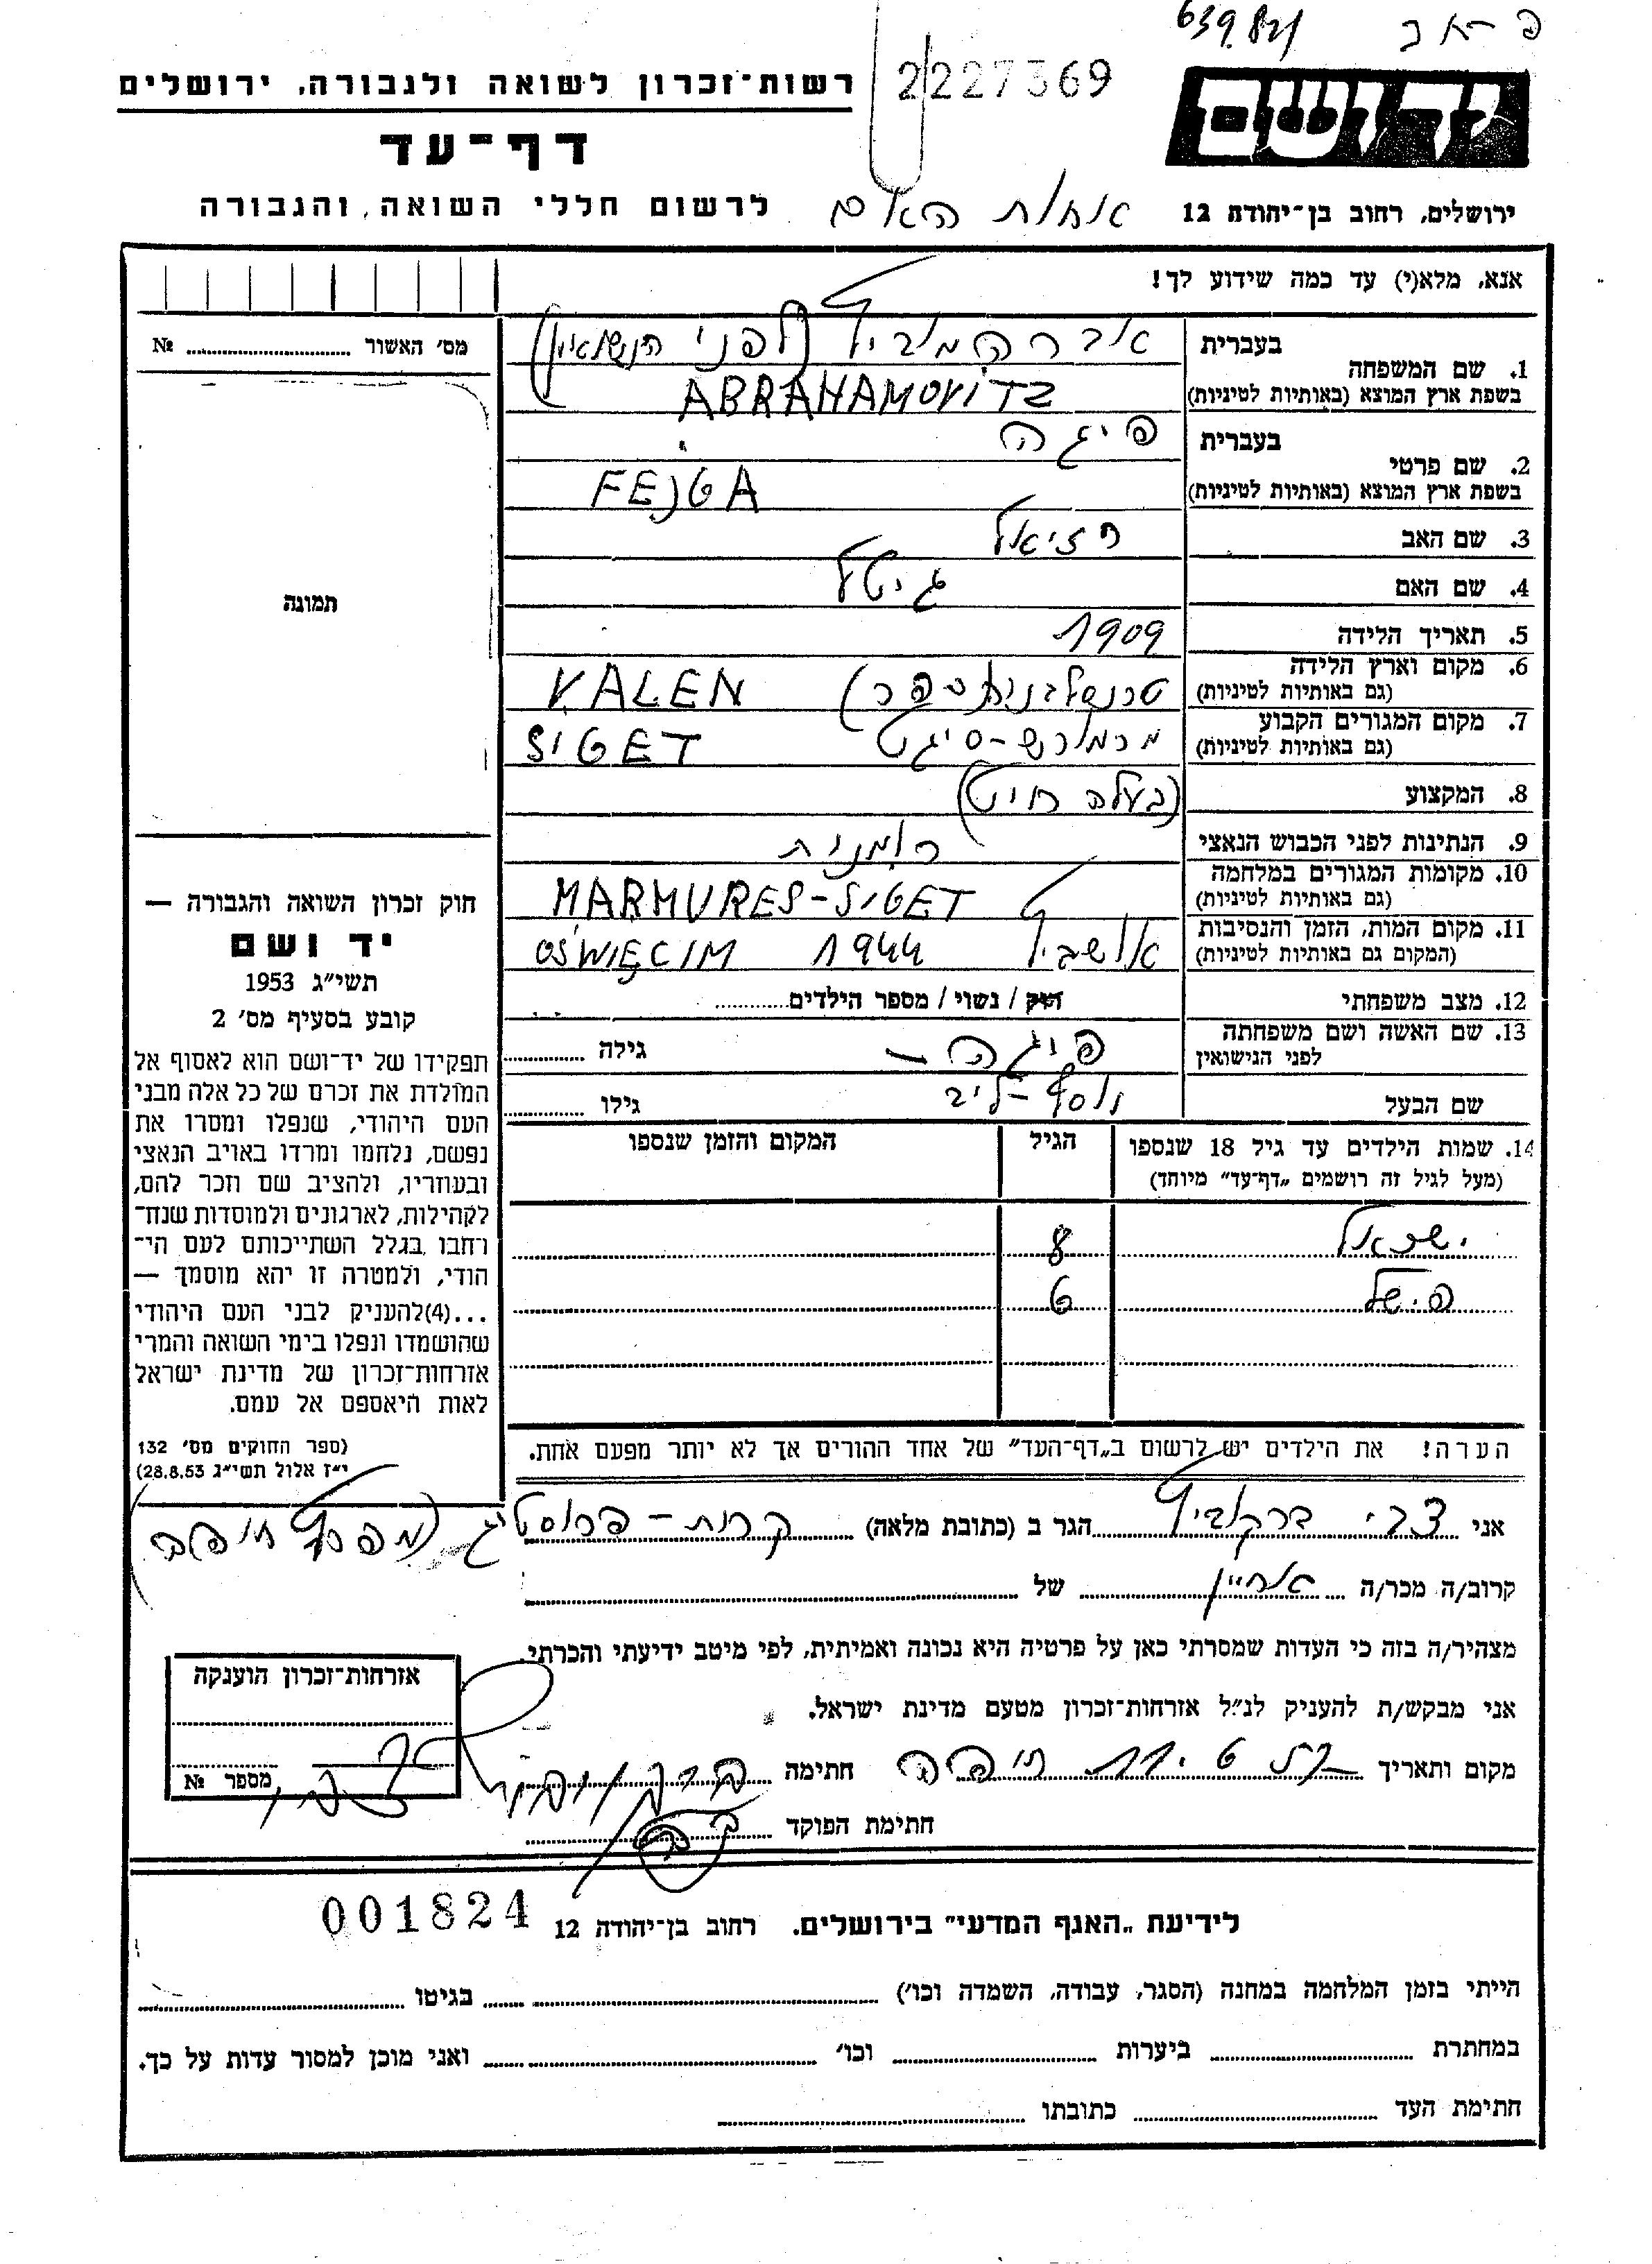 639.821
2227369
יד ושם
רשות־זכרון לשואה ולגבורה, ירושלים
דף־עד
ירושלים, רחוב בן־יהודה 12
אחות האם
לרשום חללי השואה והגבורה
אנא, מלא(י) עד כמה שידוע לך!
מס' האשור № 
תמונה
1. שם המשפחה
בעברית
אברהמוביץ (לפני הנשואין)
בשפת ארץ המוצא (באותיות לטיניות)
ABRAHAMOVITZ
2. שם פרטי
בעברית
פיגה
בשפת ארץ המוצא (באותיות לטיניות)
FEJGA
3. שם האב
4. שם האם גיטל
5. תאריך הלידה 1909
6. מקום וארץ הלידה
(גם באותיות לטיניות)
VALEN
7. מקום המגורים הקבוע
(גם באותיות לטיניות)
מרמורש-סיגט SIGET
8. המקצוע (בעלה חייט)
9. הנתינות לפני הכבוש הנאצי רומנית
10. מקומות המגורים במלחמה
(גם באותיות לטיניות)
MARMURES-SIGET
11. מקום המות, הזמן והנסיבות
(המקום גם באותיות לטיניות)
אושביץ 1944 OŚWIĘCIM
12. מצב משפחתי רווק / נשוי / מספר הילדים
13. שם האשה ושם משפחתה
לפני הנישואין
פיגה – גילה
שם הבעל יוסף-ליב גילו
14. שמות הילדים עד גיל 18 שנספו
(מעל לגיל זה רושמים „דף־עד" מיוחד)
הגיל
המקום והזמן שנספו
ישראל 8
פישל 6
הערה! את הילדים יש לרשום ב„דף־העד" של אחד ההורים אך לא יותר מפעם אחת.
חוק זכרון השואה והגבורה —
יד ושם
תשי"ג 1953
קובע בסעיף מס' 2
תפקידו של יד־ושם הוא לאסוף אל
המולדת את זכרם של כל אלה מבני
העם היהודי, שנפלו ומסרו את
נפשם, נלחמו ומרדו באויב הנאצי
ובעוזריו, ולהציב שם וזכר להם,
לקהילות, לארגונים ולמוסדות שנח־
רחבו בגלל השתייכותם לעם הי־
הודי, ולמטרה זו יהא מוסמך —
...(4) להעניק לבני העם היהודי
שהושמדו ונפלו בימי השואה והמרי
אזרחות־זכרון של מדינת ישראל
לאות היאספם אל עמם.
(ספר החוקים מס' 132
י"ז אלול תשי"ג 28.8.53)
אני צבי ברקוביץ הגר ב (כתובת מלאה) קרית-פרוסטיג (מפרץ חיפה)
קרוב/ה מכר/ה אחיין של
מצהיר/ה בזה כי העדות שמסרתי כאן על פרטיה היא נכונה ואמיתית, לפי מיטב ידיעתי והכרתי.
אני מבקש/ת להעניק לנ"ל אזרחות־זכרון מטעם מדינת ישראל.
מקום ותאריך חיפה חתימה ברקוביץ צבי
חתימת הפוקד
אזרחות־זכרון הוענקה
מספר №
001824
לידיעת „האגף המדעי" בירושלים. רחוב בן־יהודה 12
הייתי בזמן המלחמה במחנה (הסגר, עבודה, השמדה וכו') בגיטו
במחתרת ביערות וכו' ואני מוכן למסור עדות על כך.
חתימת העד כתובתו